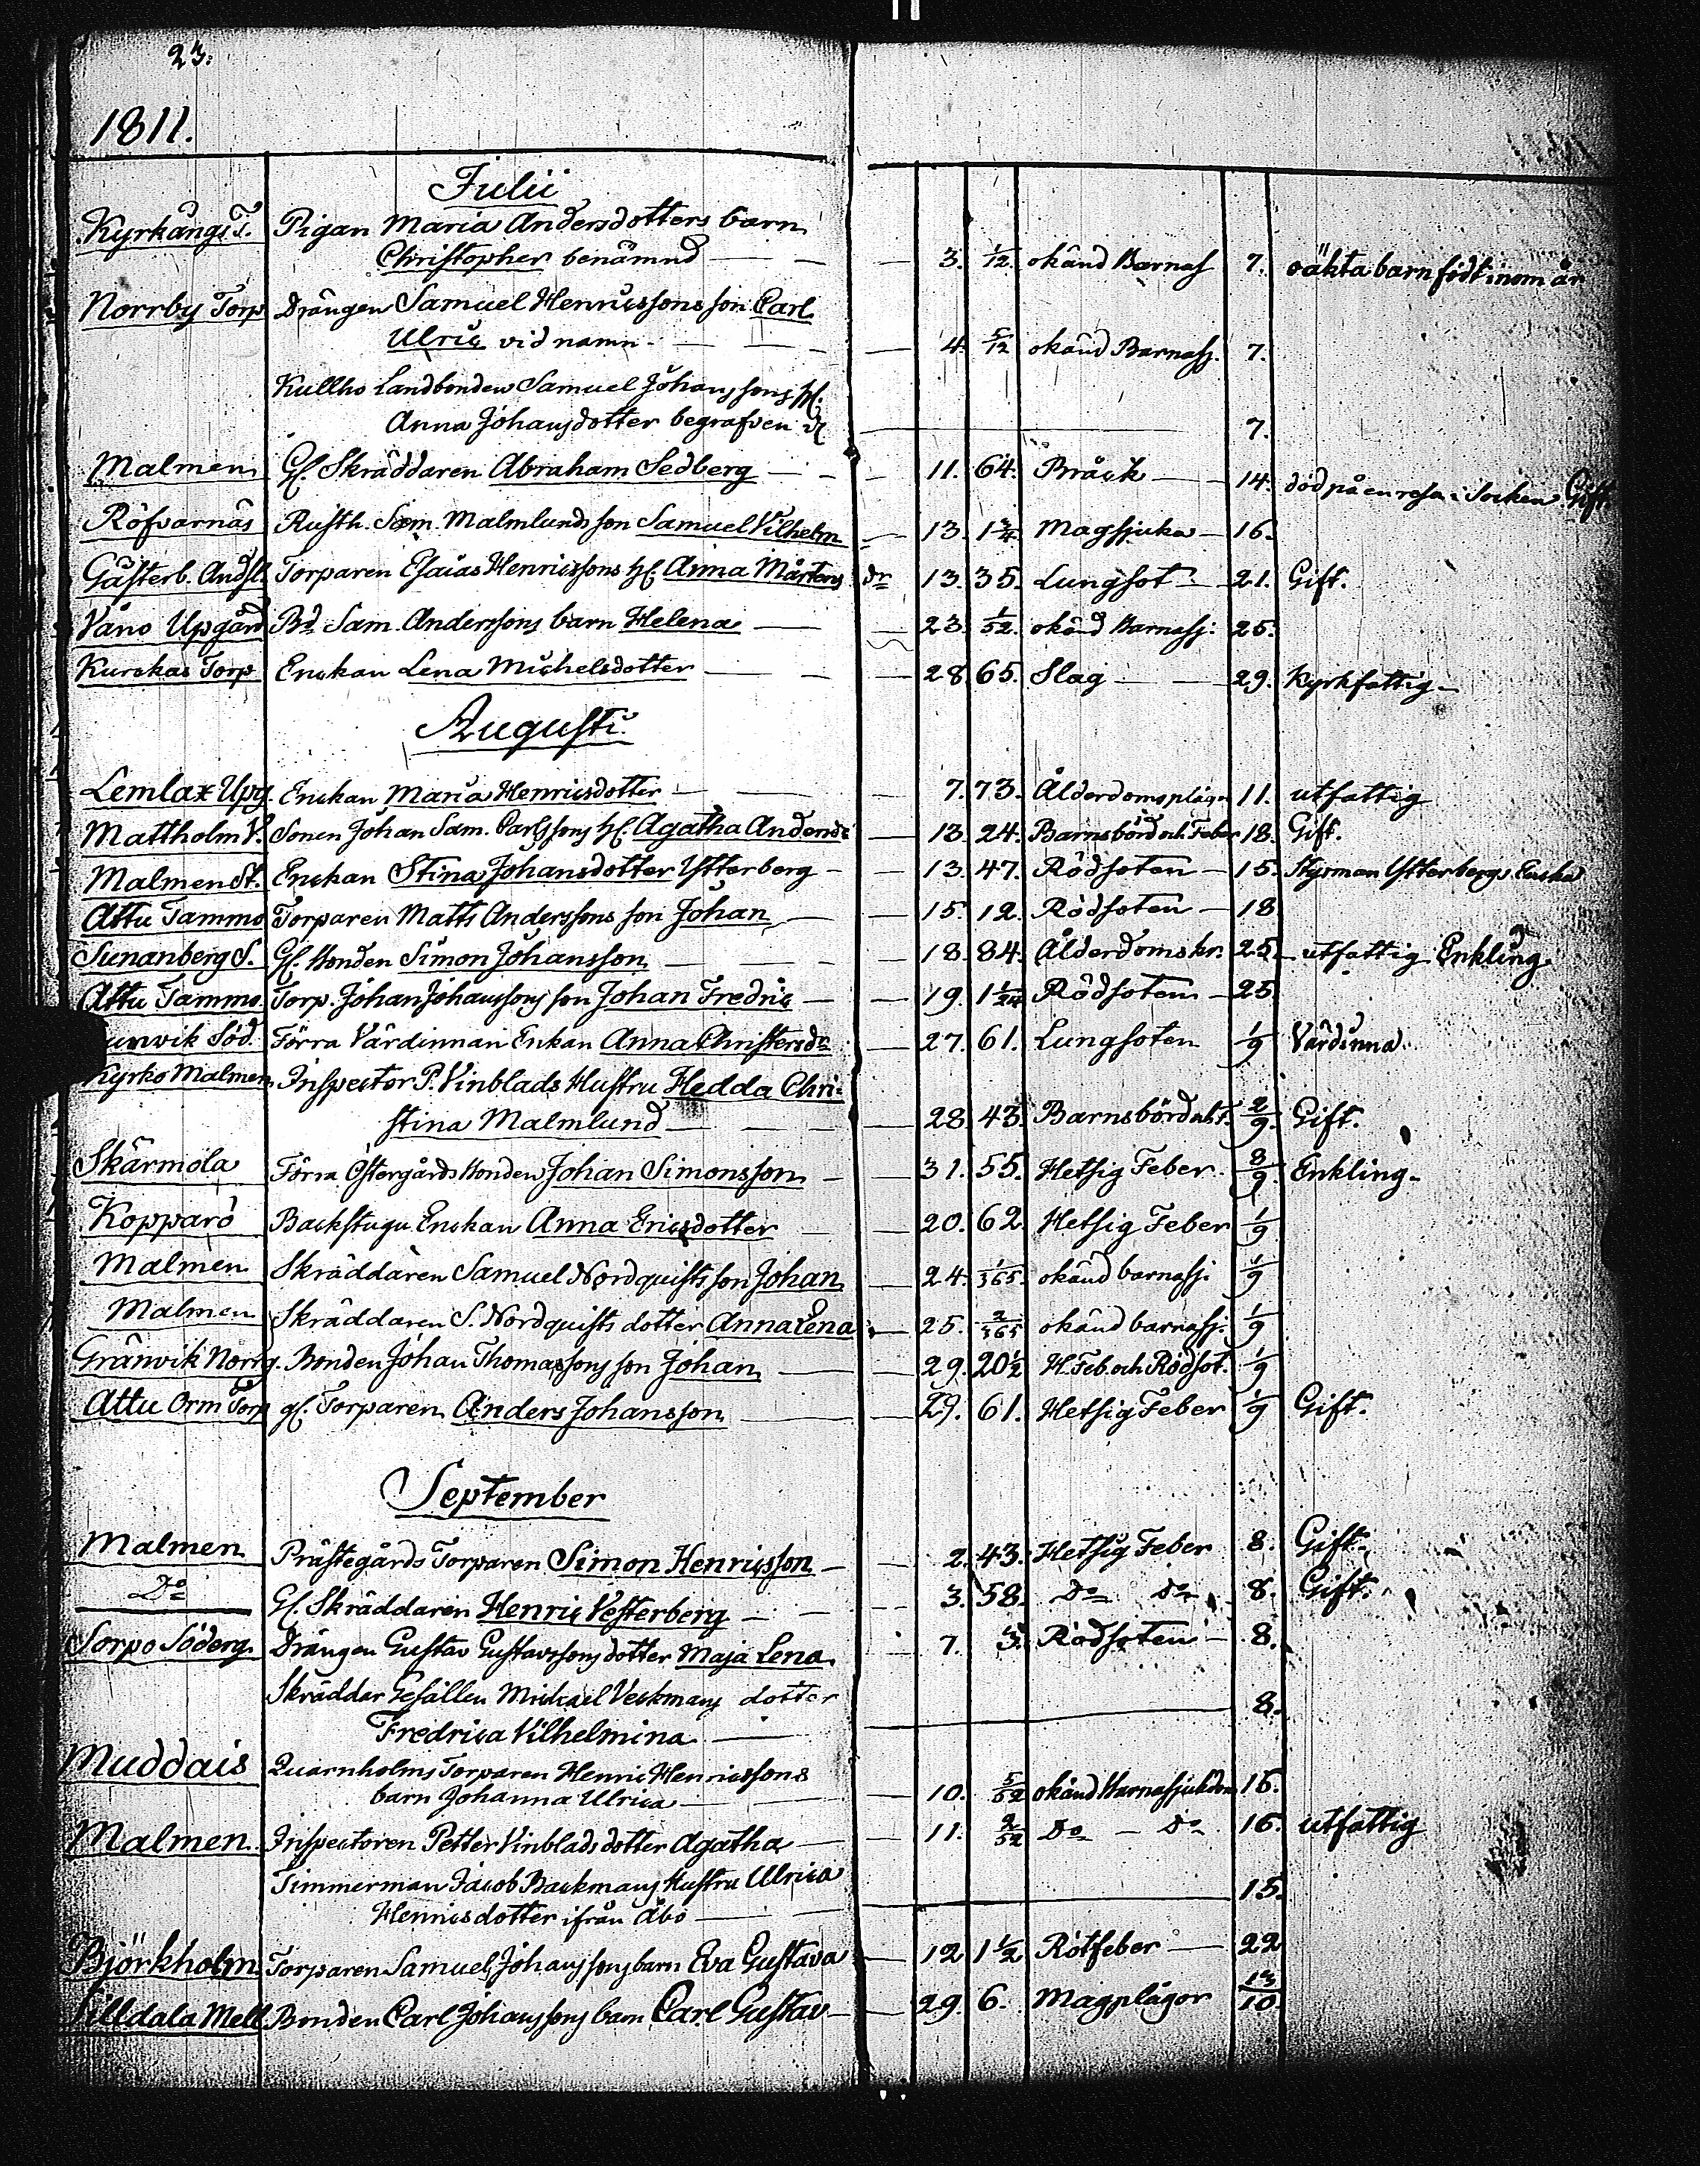 23.
1811.
Julii
Kyrkängs T. Pigan Maria Andersdotters barn
Christopher benämnd — — — 3. 1/12. okänd Barnasj 7. oäkta barn födt inom år
Norrby Torp Drängen Samuel Henricssons son Carl
Ulric vid namn — — — — 4. 5/12 okänd Barnasj. 7.
Kullho Landbonden Samuel Johanssons H.
Anna Johansdotter begrafven d. 7.
Malmen Gl. Skräddaren Abraham Sedberg — — — 11. 64. Bråck — 14. död på en resa i Socken. Gift
Röfvarnäs Rusth. Sam. Malmlunds son Samuel Vilhelm — 13. 1 3/4 Magsjuka — 16.
Gästerb. Andsl. Torparen Esaias Henricssons H. Anna Mårtens dr 13. 35. Lungsot — 21. Gift.
Våno Upgård Bd. Sam. Anderssons barn Helena — — 23. 1/52. okänd Barnasj. 25.
Kurckas Torp Enckan Lena Michelsdotter — — — 28. 65. Slag — — 29. Kyrkfattig —
Augusti.
Lemlax Upg. Enckan Maria Henricsdotter — — — 7. 73. Ålderdomsplågor 11. utfattig
Mattholm V. Sonen Johan Sam. Carlssons H. Agatha Andersdr — 13. 24. Barnsbörd och Feber 18. Gift.
Malmen St. Enckan Stina Johansdotter Ytterberg — — 13. 47. Rödsoten — 15. Styrman Ytterbergs Encka
Attu Tammo Torparen Matts Anderssons son Johan — — 15. 12. Rödsoten — 18
Sunanberg S. Gl. Bonden Simon Johansson — — — 18. 84. Ålderdomskr. 25. utfattig Enkling.
Attu Tammo. Torp. Johan Johanssons son Johan Fredric — — 19. 1 1/24 Rödsoten — 25
Söd. Förra Värdinnan Enkan Anna Christersdr — 27. 61. Lungsoten 1/9 Värdinna.
Kyrko Malmen Inspector P. Vinblads Hustru Hedda Chri-
stina Malmlund — — — — 28. 43. Barnsbörd 2/9. Gift.
Skärmola Förra Östergårds Bonden Johan Simonsson — — 31. 55. Hetsig Feber. 8/9. Enkling.
Kopparö Backstugu Enckan Anna Ericsdotter — — 20. 62. Hetsig Feber 1/9
Malmen Skräddaren Samuel Nordquists son Johan — 24. 1/365. okänd barnasj. 1/9
Malmen Skräddaren S. Nordquists dotter Anna Lena — 25. 2/365 okänd barnasj. 1/9
Gränvik Norrg. Bonden Johan Thomassons son Johan — — 29. 20 1/2 H. Feb. och Rödsot. 1/9
Attu Orm Torp gl. Torparen Anders Johansson — — 29. 61. Hetsig Feber 1/9 Gift.
September
Malmen Prästegårds Torparen Simon Henricsson — — 2. 43. Hetsig Feber 8. Gift.
Do Gl. Skräddaren Henric Vesterberg — — — 3. 58. Do Do 8. Gift.
Sorpo Söderg. Drängen Gustav Gustavssons dotter Maja Lena. — 7. 3. Rödsoten — 8.
Skräddar Gesällen Michael Veckmans dotter
Fredrica Vilhelmina — 8.
Muddais Quarnholms Torparen Henric Henricssons
barn Johanna Ulrica — — — 10. 5/52 okänd Barnasjukdom 16.
Malmen. Inspectoren Petter Vinblads dotter Agatha — — 11. 2/52 Do — Do 16. utfattig
Timmerman Jacob Backmans Hustru Ulrica
Henricsdotter ifrån Åbo — — 15.
Björkholm Torparen Samuel Johanssons barn Eva Gustava — 12 1 1/2 Rötfeber — 22
Lilldala Mell. Bonden Carl Johanssons barn Carl Gustav — — 29. 6. Magplågor 13/10.